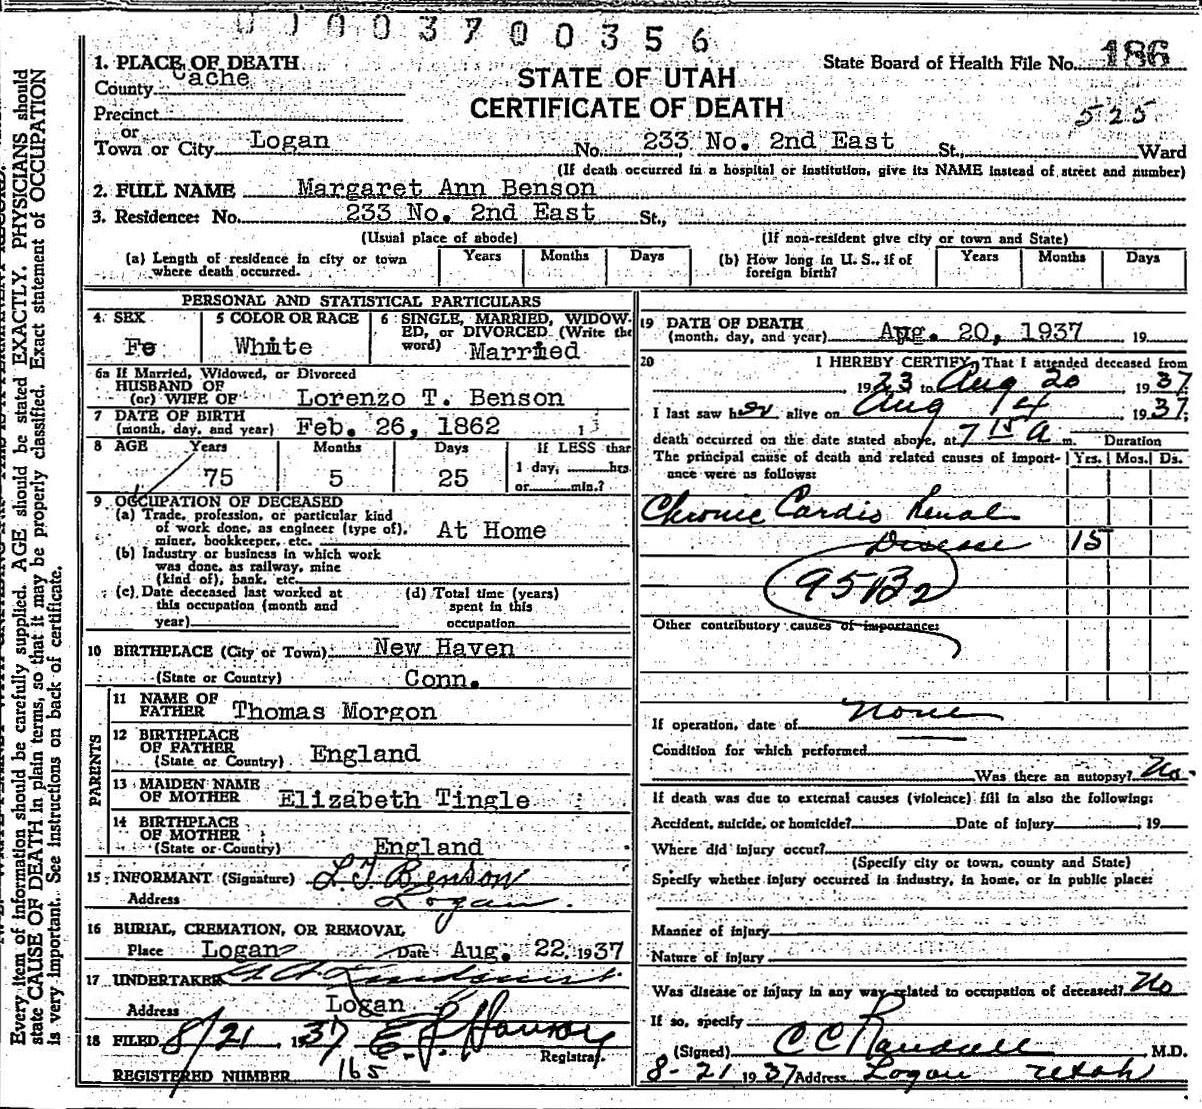 003700356
1. PLACE OF DEATH
County Cache
Precinct
or
Town or City Logan No. 233 No. 2nd East St., Ward
STATE OF UTAH
CERTIFICATE OF DEATH
State Board of Health File No. 186
525
(If death occurred in a hospital or institution, give its NAME instead of street and number)
2. FULL NAME Margaret Ann Benson
3. Residence: No. 233 No. 2nd East St.,
(Usual place of abode) (If non-resident give city or town and State)
(a) Length of residence in city or town where death occurred. Years Months Days
(b) How long in U. S., if of foreign birth? Years Months Days
PERSONAL AND STATISTICAL PARTICULARS
4. SEX Fe
5 COLOR OR RACE White
6 SINGLE, MARRIED, WIDOWED, or DIVORCED (Write the word) Married
6a If Married, Widowed, or Divorced
HUSBAND OF
(or) WIFE OF Lorenzo T. Benson
7 DATE OF BIRTH
(month, day, and year) Feb. 26, 1862
8 AGE Years Months Days If LESS than
75 5 25 1 day, hrs.
or min.?
9 OCCUPATION OF DECEASED
(a) Trade, profession, or particular kind
of work done, as engineer (type of),
miner, bookkeeper, etc. At Home
(b) Industry or business in which work
was done, as railway, mine
(kind of), bank, etc.
(c) Date deceased last worked at
this occupation (month and
year)
(d) Total time (years)
spent in this
occupation
10 BIRTHPLACE (City or Town) New Haven
(State or Country) Conn.
PARENTS
11 NAME OF
FATHER Thomas Morgon
12 BIRTHPLACE
OF FATHER
(State or Country) England
13 MAIDEN NAME
OF MOTHER Elizabeth Tingle
14 BIRTHPLACE
OF MOTHER
(State or Country) England
15 INFORMANT (Signature) L T Benson
Address Logan.
16 BURIAL, CREMATION, OR REMOVAL
Place Logan Date Aug. 22, 1937
17 UNDERTAKER
Address Logan
18 FILED 8/21 1937
Registrar.
REGISTERED NUMBER 165
19 DATE OF DEATH
(month, day, and year) Aug. 20, 1937 19
20 I HEREBY CERTIFY, That I attended deceased from
1923 to Aug 20 1937
I last saw her alive on Aug 14 1937;
death occurred on the date stated above, at 7 15 A m. Duration
The principal cause of death and related causes of importance were as follows: Yrs. Mos. Ds.
Chronic Cardio Renal
Disease 15
95B2
Other contributory causes of importance:
If operation, date of None
Condition for which performed
Was there an autopsy? No.
If death was due to external causes (violence) fill in also the following:
Accident, suicide, or homicide? Date of injury , 19
Where did injury occur?
(Specify city or town, county and State)
Specify whether injury occurred in industry, in home, or in public place:
Manner of injury
Nature of injury
Was disease or injury in any way related to occupation of deceased? No
If so, specify
(Signed) C C Randall M.D.
8-21 1937 Address Logan Utah
Every item of information should be carefully supplied. AGE should be stated EXACTLY. PHYSICIANS should
state CAUSE OF DEATH in plain terms, so that it may be properly classified. Exact statement of OCCUPATION
is very important. See instructions on back of certificate.